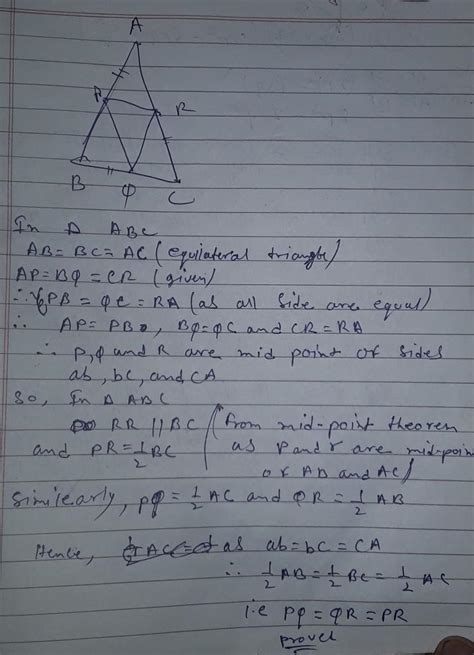 A
P
R
B
Q
C
In Δ ABC
AB = BC = AC (equilateral triangle)
AP = BQ = CR (given)
∴ PB = QC = RA (as all side are equal)
∴ AP = PB, BQ = QC and CR = RA
∴ P, Q and R are mid point of sides
ab, bc, and CA
So, In Δ ABC
RR || BC (from mid-point theorem
and PR = 1/2 BC as P and r are mid-poin
of AB and AC)
Similerly, PQ = 1/2 AC and QR = 1/2 AB
Hence, as ab = bC = CA
∴ 1/2 AB = 1/2 BC = 1/2 AC
i.e PQ = QR = PR
proved